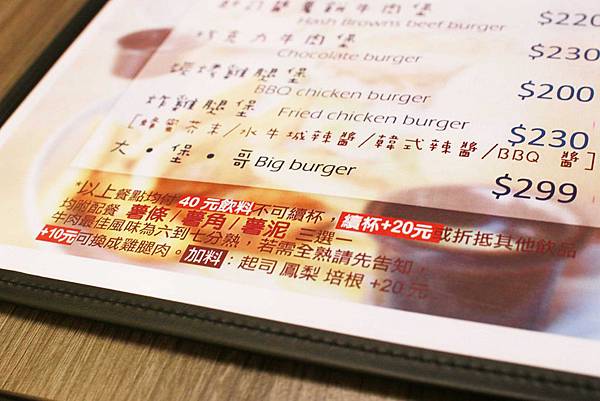 薯餅牛肉堡
Hash Browns beef burger $220
巧克力牛肉堡 $230
Chocolate burger
碳烤雞腿堡 $200
BBQ chicken burger
炸雞腿堡 $230
Fried chicken burger
[蜂蜜芥末/水牛城辣醬/韓式辣醬/BBQ 醬]
大・堡・哥 Big burger $299
*以上餐點均付 40 元飲料不可續杯，續杯+20元或折抵其他飲品
均附配餐 薯條 / 薯角 / 薯泥 三選一
牛肉最佳風味為六到七分熟，若需全熟請先告知
+10元可換成雞腿肉。加料：起司 鳳梨 培根 +20 元